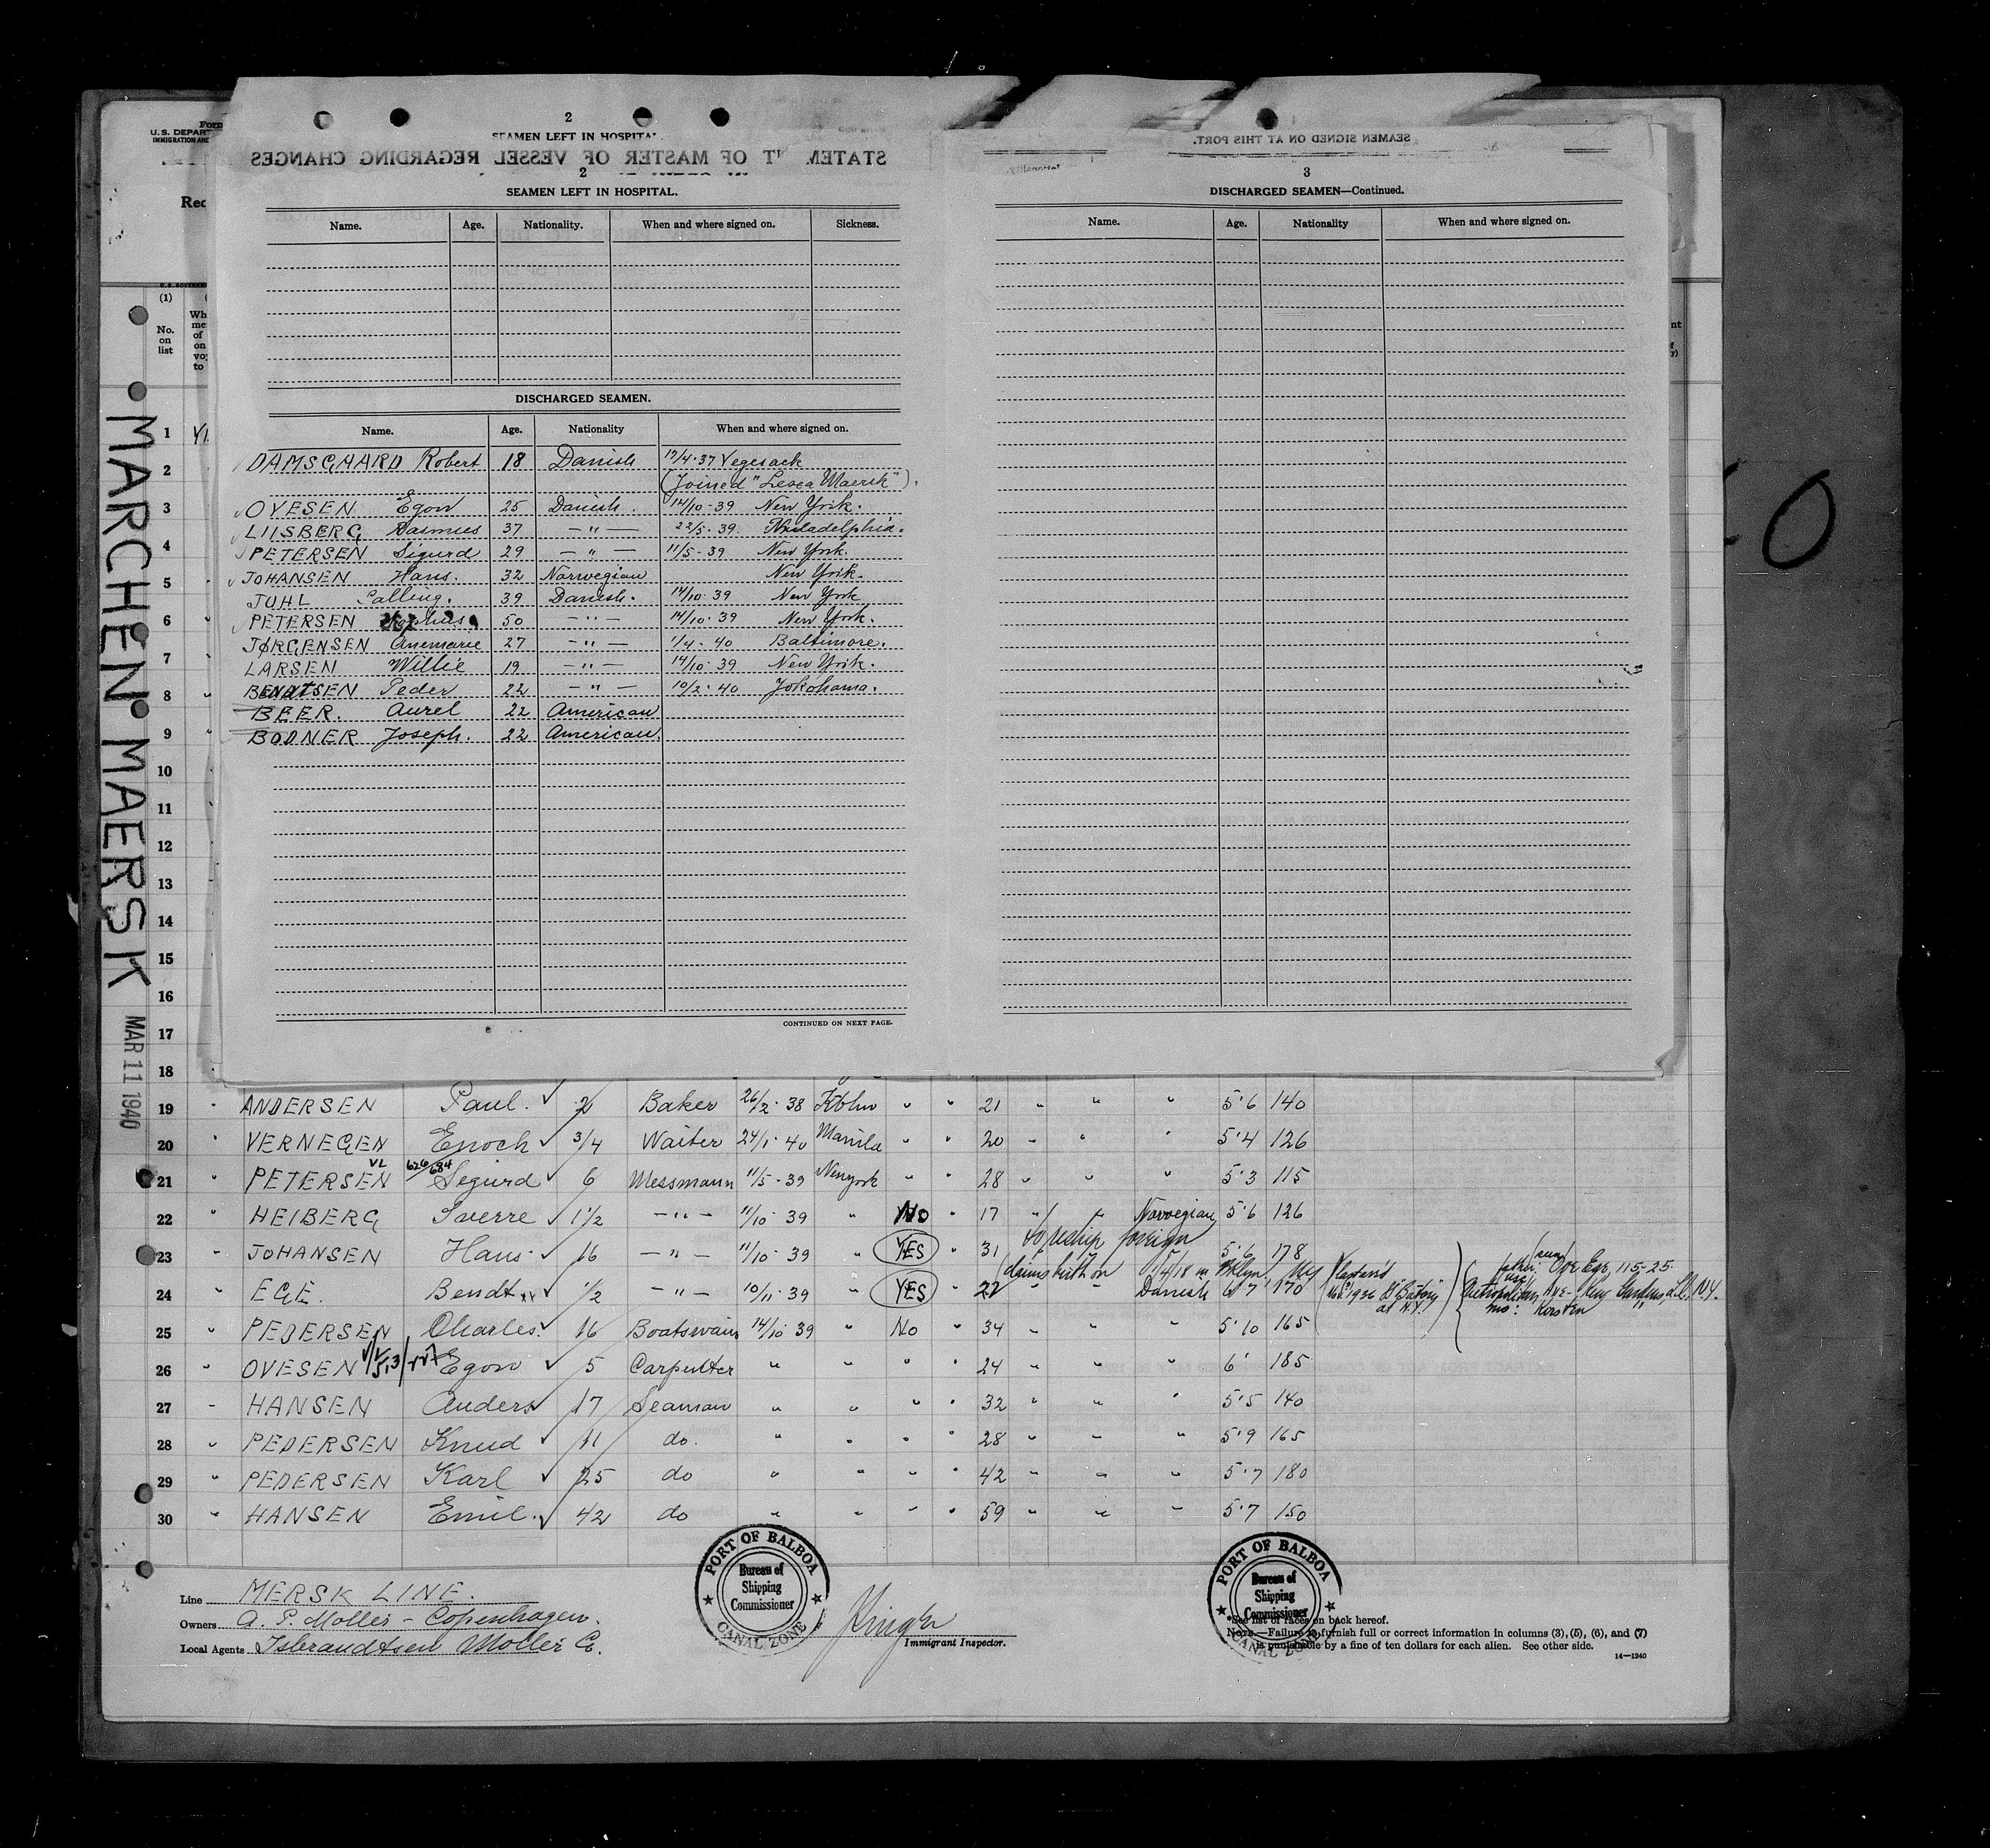 2
SEAMEN LEFT IN HOSPITAL
STATEM T OF MASTER OF VESSEL REGARDING CHANGES
2
SEAMEN LEFT IN HOSPITAL.
Name. Age. Nationality. When and where signed on. Sickness.
DISCHARGED SEAMEN.
Name. Age. Nationality When and where signed on.
DAMSGAARD Robert 18 Danish 17/4·37 Vegesack
(Joined "Leexa Maersk").
OVESEN Egon 25 Danish. 14/10-39 New York.
LIISBERG Rasmus 37 -"- 22/5·39. Philadelphia.
PETERSEN Sigurd 29 -"- 11/5-39 New York.
JOHANSEN Hans. 32 Norwegian New York.
JUHL Palling. 39 Danish. 14/10·39 New York
PETERSEN 50 -"- 14/10·39 New York.
JØRGENSEN Anemarie 27 -"- 1/4-40 Baltimore.
LARSEN Willie 19 -"- 14/10·39 New York.
BENDTSEN Peder 22 -"- 10/2·40 Yokohama.
BEER. Aurel 22 American
BODNER Joseph. 22 American.
CONTINUED ON NEXT PAGE.
SEAMEN SIGNED ON AT THIS PORT.
3
DISCHARGED SEAMEN—Continued.
Name. Age. Nationality When and where signed on.
Form
U.S. DEPART
IMMIGRATION AND
Rec
(1)
No.
on
list
Wh
me
of
on
vo
to
MARCHEN MAERSK
MAR 11 1940
1
2
3
4
5
6
7
8
9
10
11
12
13
14
15
16
17
18
19 " ANDERSEN Paul. 2 Baker 26/2·38 Kbhn " " 21 " " " 5'6 140
20 " VERNEGEN Enoch 3/4 Waiter 24/1·40 Manila " " 20 " " 5'4 126
21 " PETERSEN VL 626/684 Sigurd 6 Messmann 11/5-39 Newyork " " 28 " " " 5'3 115
22 " HEIBERG Sverre 1 1/2 -"- 11/10·39 " No " 17 " " Norwegian 5'6 126
23 " JOHANSEN Hans. 16 -"- 11/10·39 " YES " 31 to reship foreign 5'6 178
24 " EGE. Bendt xx 1/2 -"- 10/11·39 " YES " 22 claims birth on Danish 6'7 170
25 " PEDERSEN Charles. 16 Boatswain 14/10 39 " No " 34 " " " 5'10 165
26 " OVESEN Egon 5 Carpulter " " " " 24 " " " 6' 185
27 " HANSEN Anders 17 Seaman " " " " 32 " " " 5'5 140
28 " PEDERSEN Knud 11 do. " " " " 28 " " " 5'9 165
29 " PEDERSEN Karl 25 do " " " " 42 " " " 5'7 180
30 " HANSEN Emil. 42 do " " " " 59 " " " 5'7 150
Line MERSK LINE.
Owners A. P. Moller - Copenhagen.
Local Agents Isbrandtsen Moller Co.
PORT OF BALBOA
Bureau of
Shipping
Commissioner
CANAL ZONE
Immigrant Inspector.
PORT OF BALBOA
Bureau of
Shipping
Commissioner
CANAL ZONE
*See list of races on back hereof.
NOTE.—Failure to furnish full or correct information in columns (3), (5), (6), and (7)
is punishable by a fine of ten dollars for each alien. See other side.
14—1240